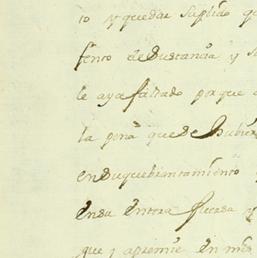 to y quedar suplido q
fento de Sustancia y s
le aya faltado porque
la pena que de Hubier
en Su quebrantamiento y
en Su entera fuerza y
que y apremie en mas